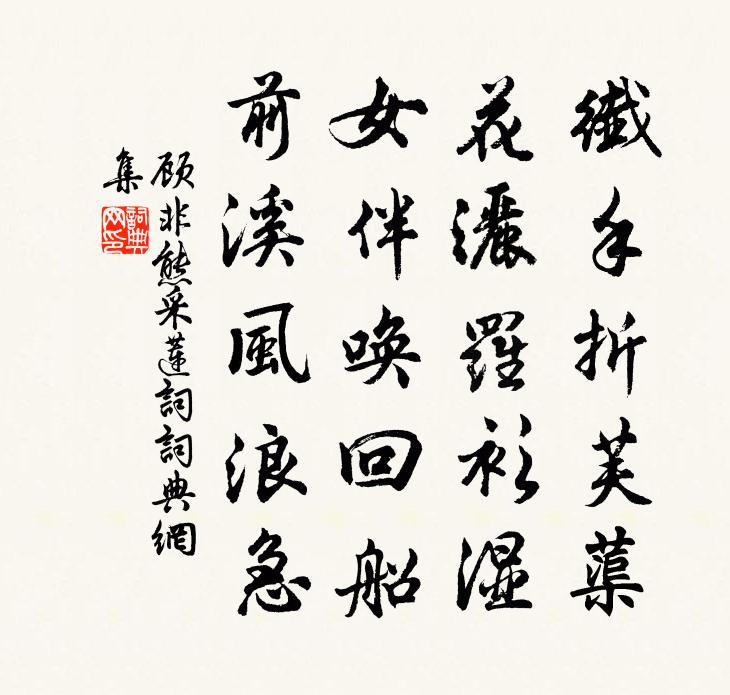 纖手折芙蕖
花灑羅衫濕
女伴喚回船
前溪風浪急
顾非熊采蓮詞詞典網
集
詞典
网印